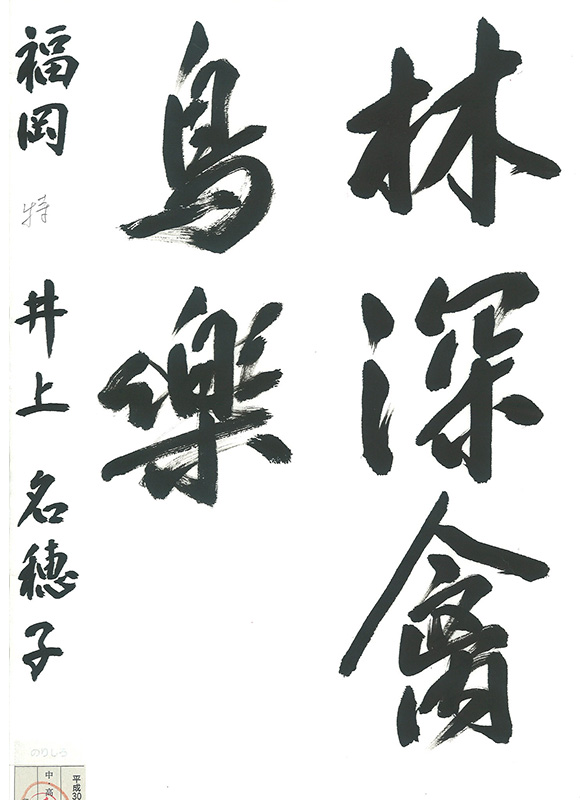 林深禽
鳥樂
福岡 特 井上 名穂子
のりしろ
平成30
中高